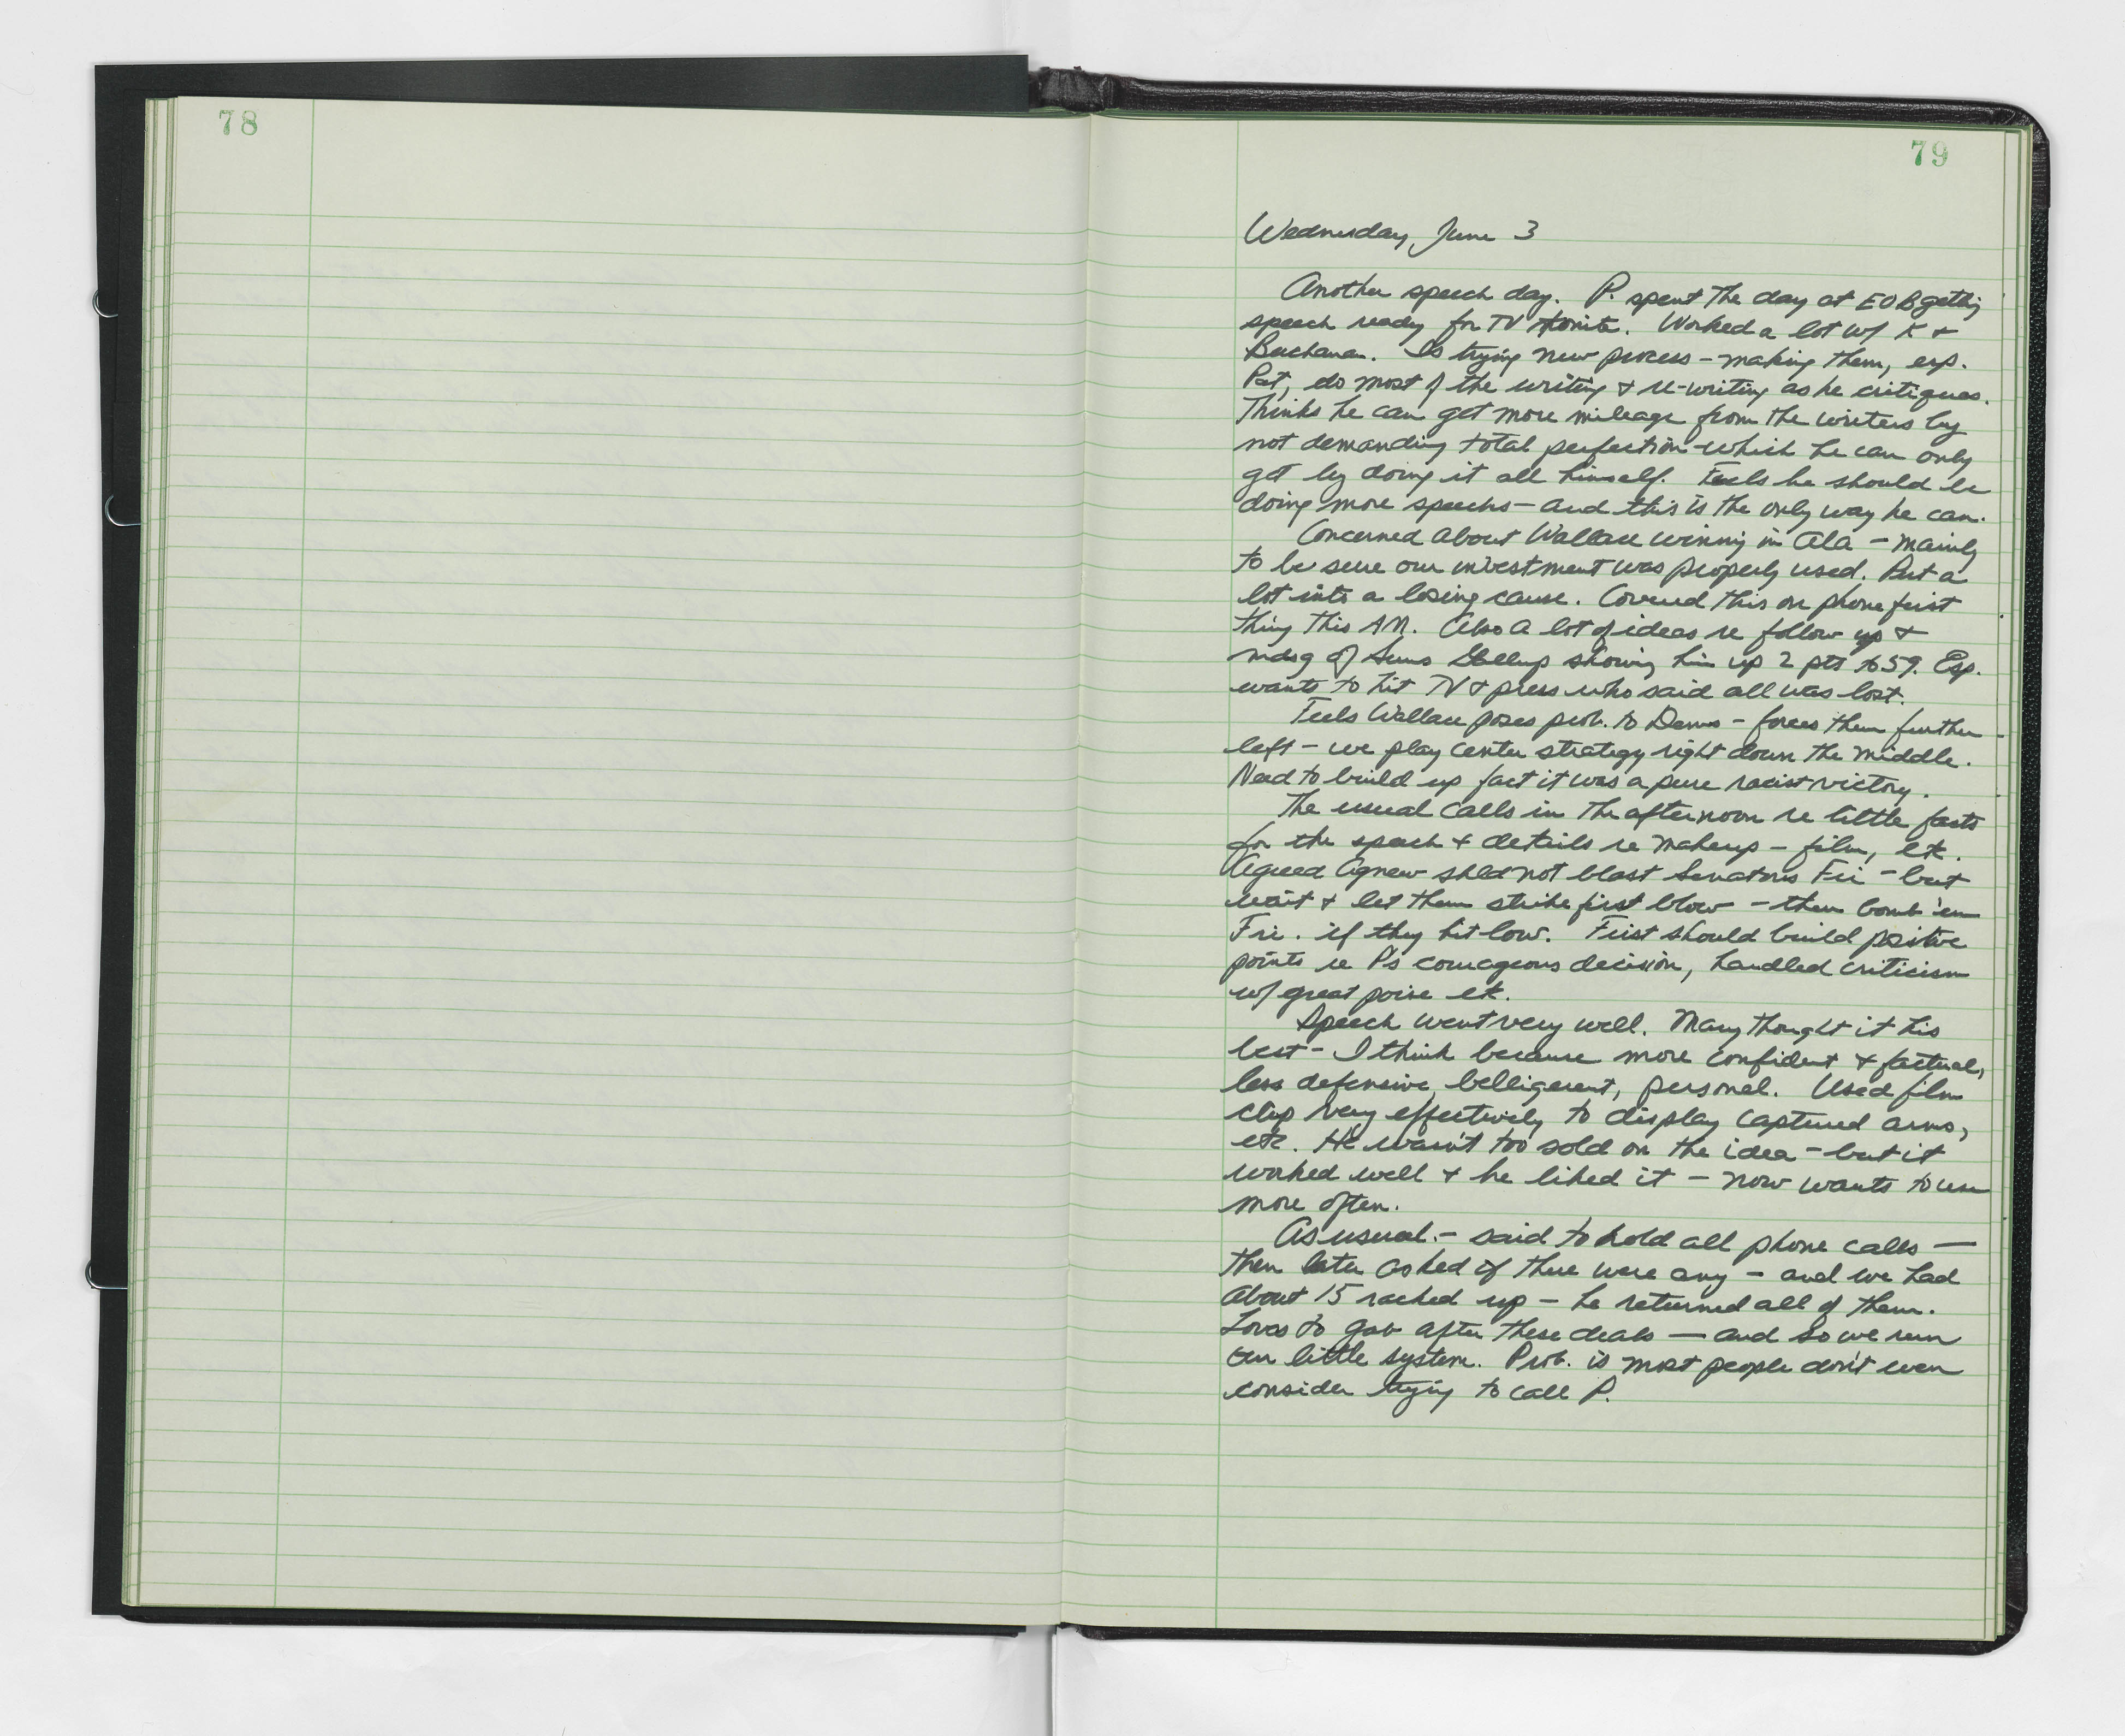 78
79
Wednesday, June 3
Another speech day. P. spent the day at EOB getting
speech ready for TV tonite. Worked a lot w/ K +
Buchanan. Is trying new process - making them, esp.
Pat, do most of the writing + re-writing as he critiques.
Thinks he can get more mileage from the writers by
not demanding total perfection - which he can only
get by doing it all himself. Feels he should be
doing more speechs - and this is the only way he can.
Concerned about Wallace winning in Ala - mainly
to be sure our investment was properly used. Put a
lot into a losing cause. Covered this on phone first
thing this AM. Also a lot of ideas re follow up +
mdsg of Gallup showing him up 2 pts to 59. Esp.
wants to hit TV + press who said all was lost.
Feels Wallace poses prob. to Dems - forces them further
left - we play center strategy right down the middle.
Need to build up fact it was a pure racist victory.
The usual calls in the afternoon re little facts
for the speech + details re makeup - film, etc.
Agreed Agnew shld not blast Senators Fri - but
wait + let them strike first blow - then bomb 'em
Fri. if they hit low. First should build positive
points re P's courageous decision, handled criticism
w/ great poise etc.
Speech went very well. Many thought it his
best - I think because more confident + factual,
less defensive, belligerent, personal. Used film
clip very effectively to display captured arms,
etc. He wasn't too sold on the idea - but it
worked well + he liked it - now wants to use
more often.
As usual - said to hold all phone calls -
then later asked if there were any - and we had
about 15 racked up - he returned all of them.
Loves to gab after these deals - and so we run
our little system. Prob. is most people don't even
consider trying to call P.